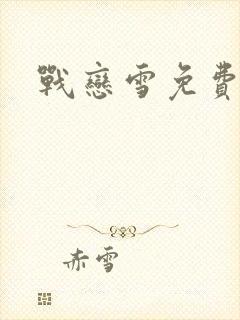 戰戀雪免費
赤雪